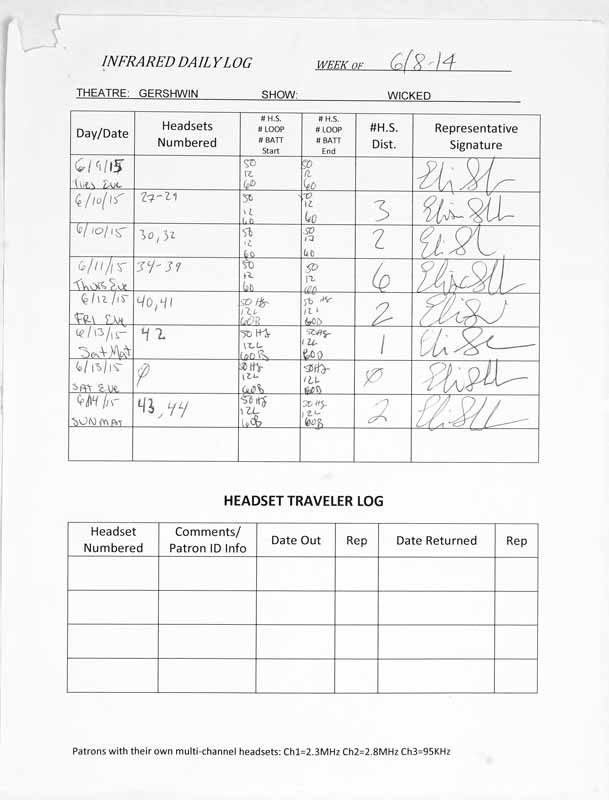 INFRARED DAILY LOG WEEK OF 6/8-14
THEATRE: GERSHWIN SHOW: WICKED
Day/Date Headsets Numbered # H.S. # LOOP # BATT Start # H.S. # LOOP # BATT End #H.S. Dist. Representative Signature
6/9/15 Tues Eve 50 12 60 50 12 60
6/10/15 27-29 50 12 60 50 12 60 3
6/10/15 30,32 50 12 60 50 12 60 2
6/11/15 Thurs Eve 34-39 50 12 60 50 12 60 6
6/12/15 FRI Eve 40,41 50 HS 12L 60B 50 HS 12L 60B 2
6/13/15 Sat Mat 42 50 HS 12L 60B 50HS 12L 60B 1
6/13/15 SAT EVE Ø 50HS 12L 60B 50HS 12L 60B Ø
6/14/15 SUN MAT 43,44 50 HS 12L 60B 50 HS 12L 60B 2
HEADSET TRAVELER LOG
Headset Numbered Comments/ Patron ID Info Date Out Rep Date Returned Rep
Patrons with their own multi-channel headsets: Ch1=2.3MHz Ch2=2.8MHz Ch3=95KHz